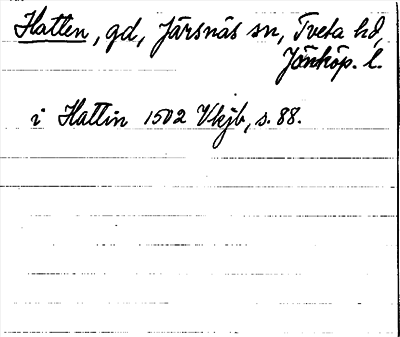 Hatten, gd, Järsnäs sn, Tveta hd,
Jönköp. l.
i Hattin 1502 Vkjb, s. 88.